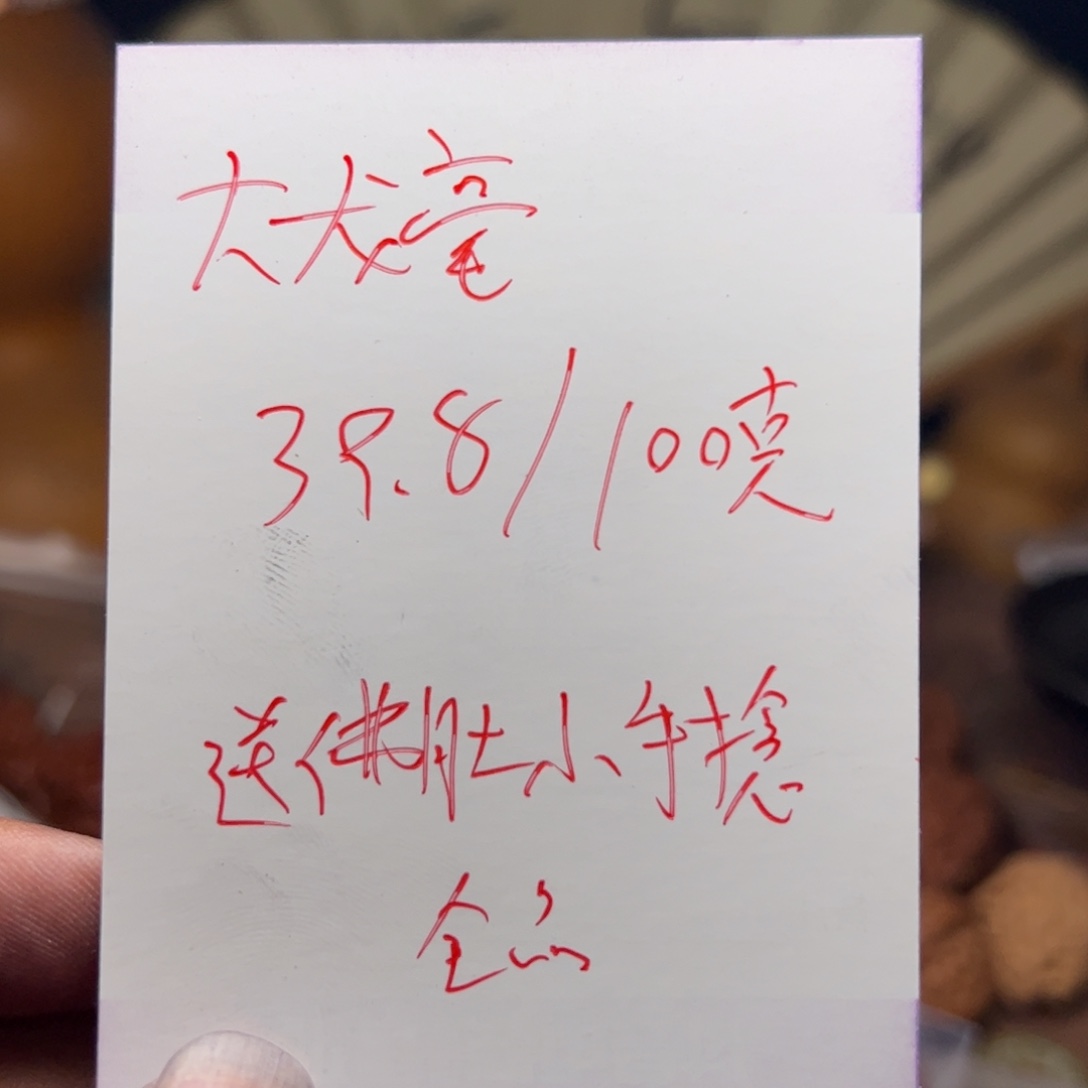 大犬毫
39.8/100克
送佛肚小手捻
全品